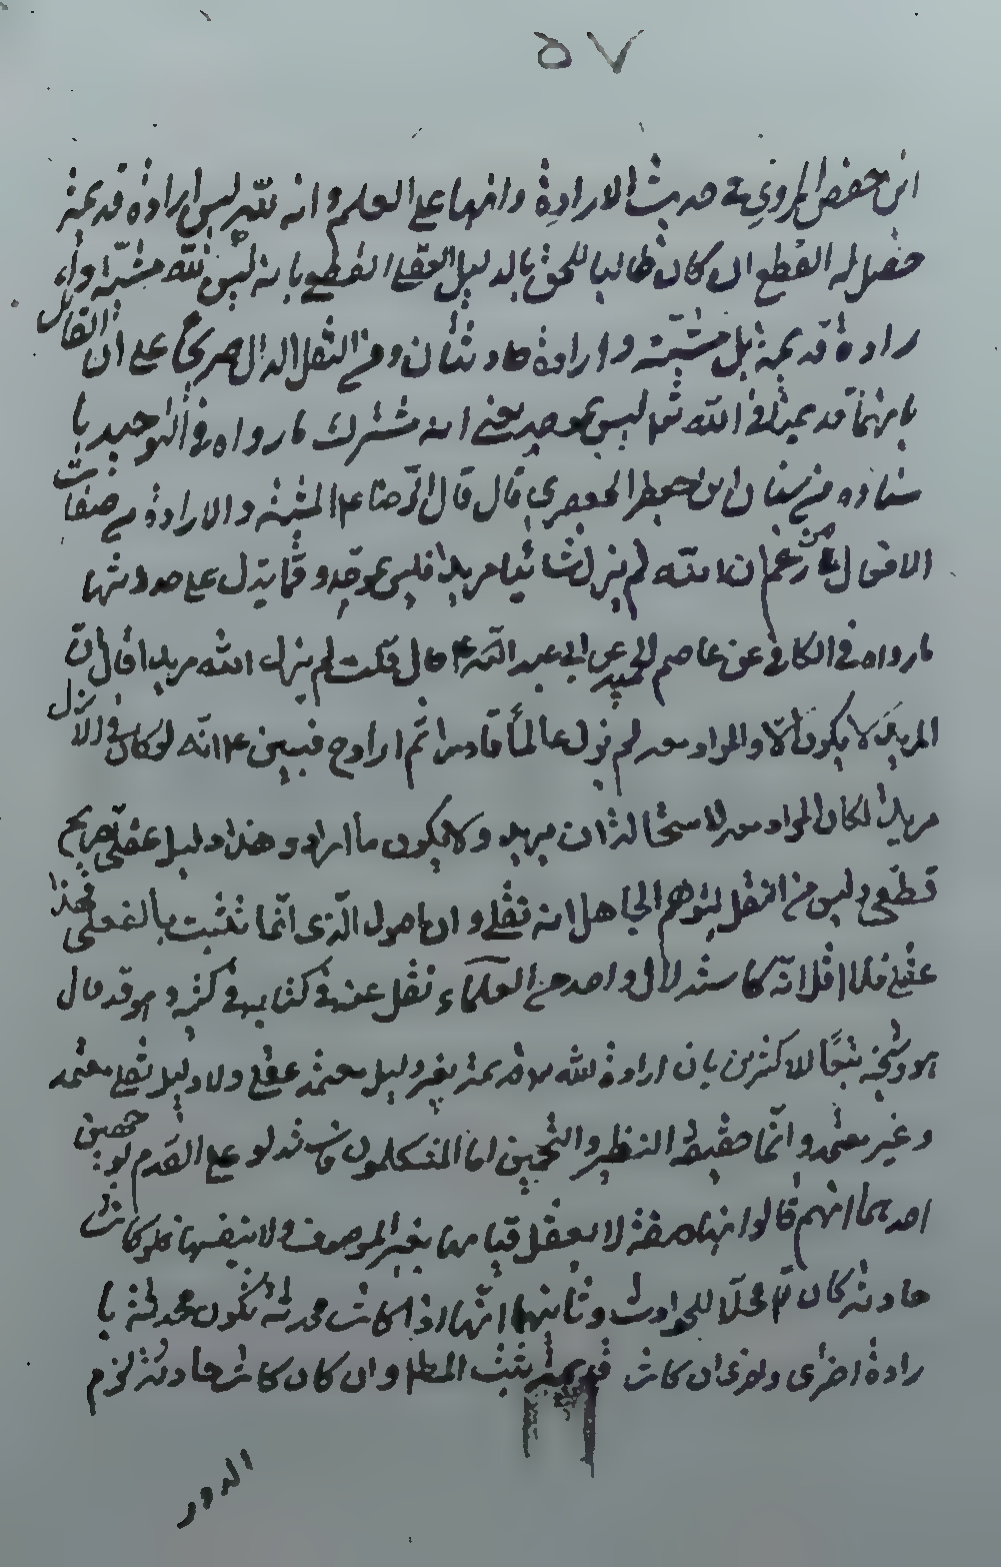 ٥٧
ابن حفص المروي في حديث الارادة وانها على العلم وانه لله ليس ارادة قديمة
حصل له القطع ان كان طالبا للحق بالدليل العقلي القطعي بانه ليس لله مشيّة وا
رادة قديمة بل مشيّته وارادة حادثتان ومن النقل الدال صريحًا على ان القائل
بانهما قديمتان الله ليس بموحد يعني انه مشرك ما رواه في التوحيد با
سناده من سليمان ابن جعفر الجعفري قال قال الرضا ع المشية والارادة من صفات
الافعال فمن زعم ان الله لم يزل شائيا مريدا فليس بموحد وممّا يدل على حدوثها
ما رواه في الكافي عن عاصم بن حميد عن ابي عبد الله ع قال قلت لم يزل الله مريدا قال ان
المريد لا يكون الّا والمراد معه لم يزل عالمًا قادرا ثم اراد فبين ع انه لو كان في الازل
مريدا لكان المراد معه لاستحالة ان يريد ولا يكون ما اراد وهذا دليل عقلي صريح
قطعي وليس من النقل ليتوهم الجاهل انه نقلي وان الاصول الذي انما تثبت بالعقلي فهذا
عقلي فلا اقل انه كاستدلال واحد من العلماء نقل عنه في كتابه في كثيره وقد قال
هو وشيخه تبعًا للاكثرين بان ارادة الله قديمة بغير دليل معتمد عقلي ولا دليل نقلي معتمد
وغير معتمد وانّما حقيقة النظير والتخمين اما المتكلمون فاستدلو على القدم لوجهين
احدهما انهم قالوا انها صفة لا يعقل قيامها بغير الموصوف ولا بنفسها فلو كانت
حادثة كان تع محلّا للحوادث وثانيهما انّها اذا كانت محدثة تكون محدثة با
رادة اخرى والاخرى ان كانت قديمة يثبت المطلوب وان كان كانت حادثة لزم
الدور